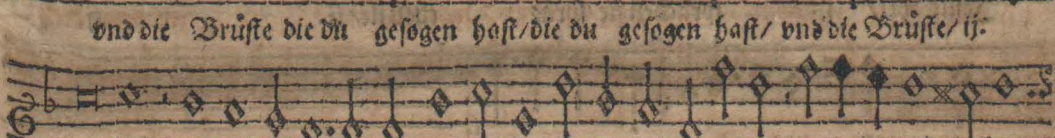 vnd die Brůſte die du geſogen haſt/die du geſogen haſt/ vnd die Brůſte/ ij: